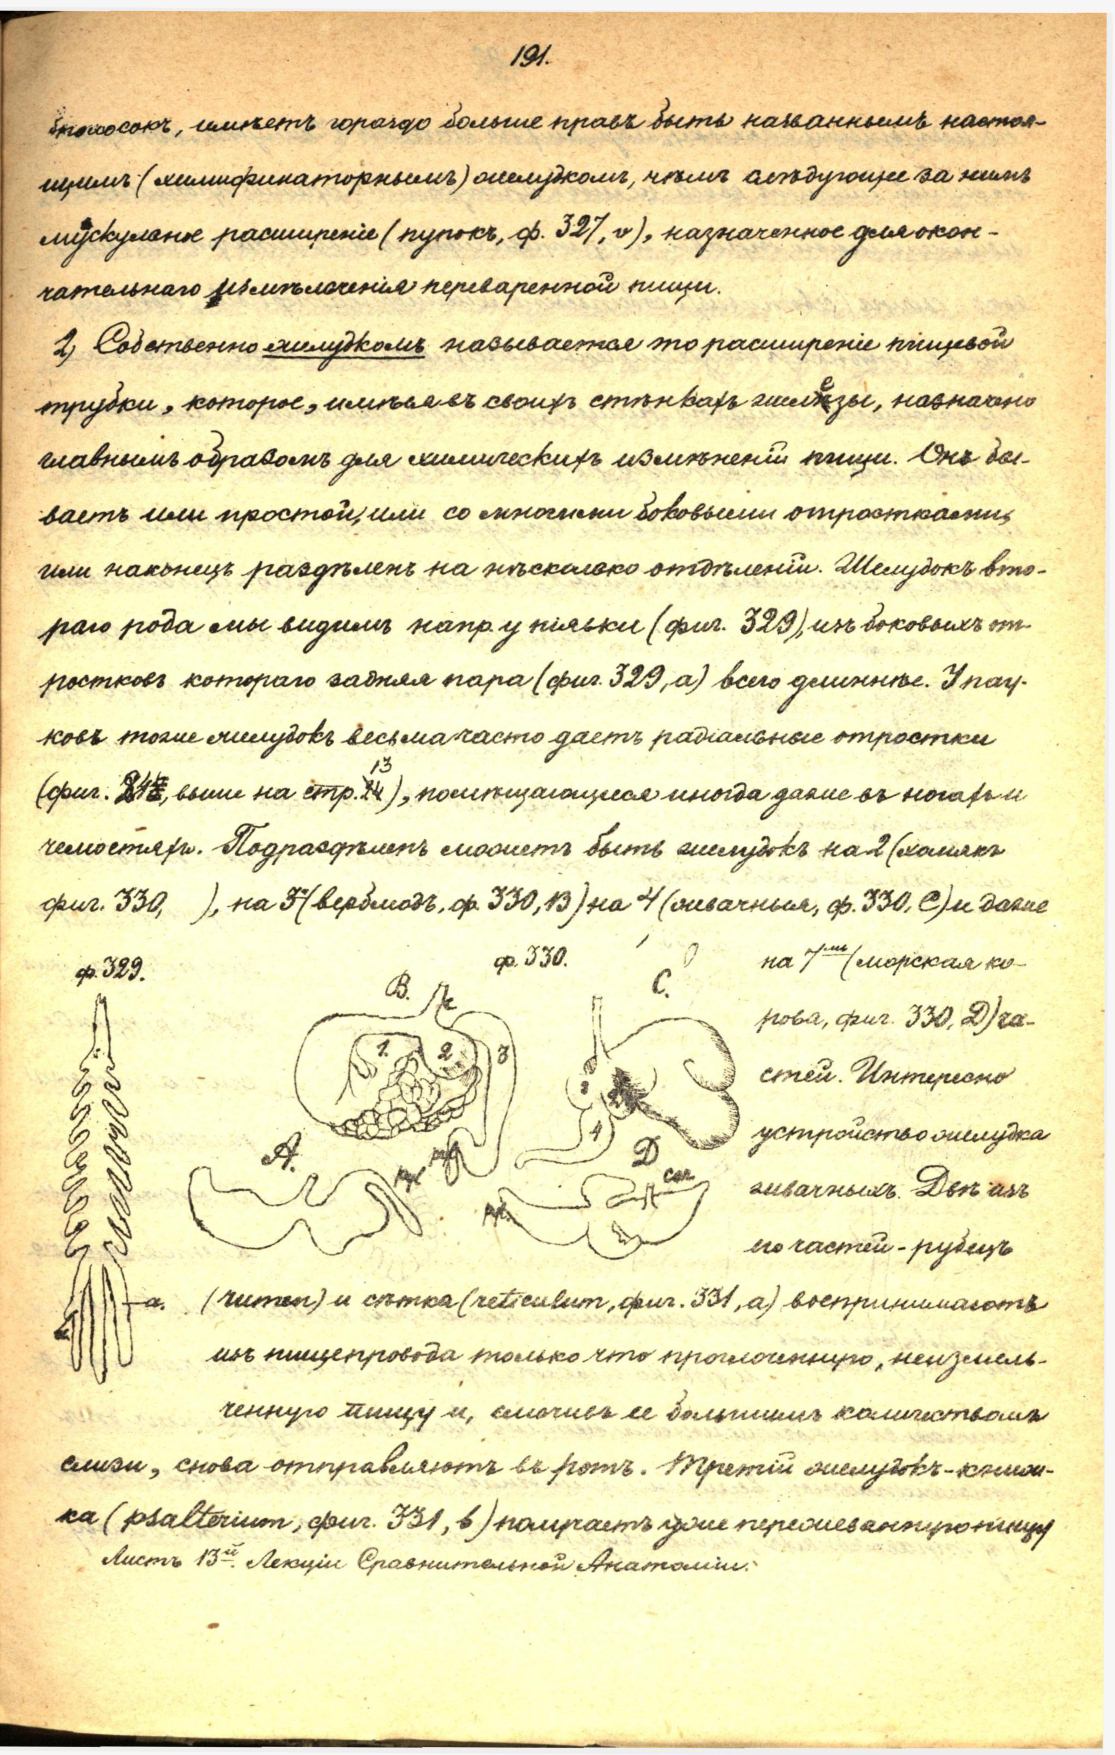 191.
имѣетъ гораздо больше правъ быть названнымъ настоя-
щимъ (химификаторнымъ) желудкомъ, чѣмъ слѣдующее за нимъ
мускульное расширеніе (пупокъ, ф. 327, v), назначенное для окон-
чательнаго измѣльченія переваренной пищи.
2) Собственно желудкомъ называется то расширеніе пищевой
трубки, которое, имѣя въ своихъ стѣнкахъ железы, назначено
главнымъ образомъ для химическихъ измѣненій пищи. Онъ бы-
ваетъ или простой, или со многими боковыми отростками,
или наконецъ раздѣленъ на нѣсколько отдѣленій. Желудокъ вто-
раго рода мы видимъ напр. у піявки (фиг. 329), изъ боковыхъ от-
ростковъ котораго задняя пара (фиг. 329, а) всего длиннѣе. У пау-
ковъ тоже желудокъ весьма часто даетъ радіальные отростки
13
(фиг. выше на стр. ), помѣщающіеся иногда даже въ ногахъ и
челюстяхъ. Подраздѣленъ можетъ быть желудокъ на 2 (хомякъ
фиг. 330, ), на 3 (верблюдъ, ф. 330, В) на 4 (жвачныя, ф. 330, С) и даже
ф. 329.
ф. 330.
на 7 (морская ко-
рова, фиг. 330, D) ча-
стей. Интересно
устройство желудка
жвачныхъ. Двѣ изъ
его частей - рубецъ
B.
C.
1.
2
3
4
A.
D
a.
(rumen) и сѣтка (reticulum, фиг. 331, а) воспринимаютъ
изъ пищепровода только что проглоченную, неизмель-
ченную пищу и, смочивъ ее большимъ количествомъ
слизи, снова отправляютъ въ ротъ. Третій желудокъ - книж-
ка (psalterium, фиг. 331, b) получаетъ уже пережеванную пищу
Листъ 13й. Лекціи Сравнительной Анатоміи.